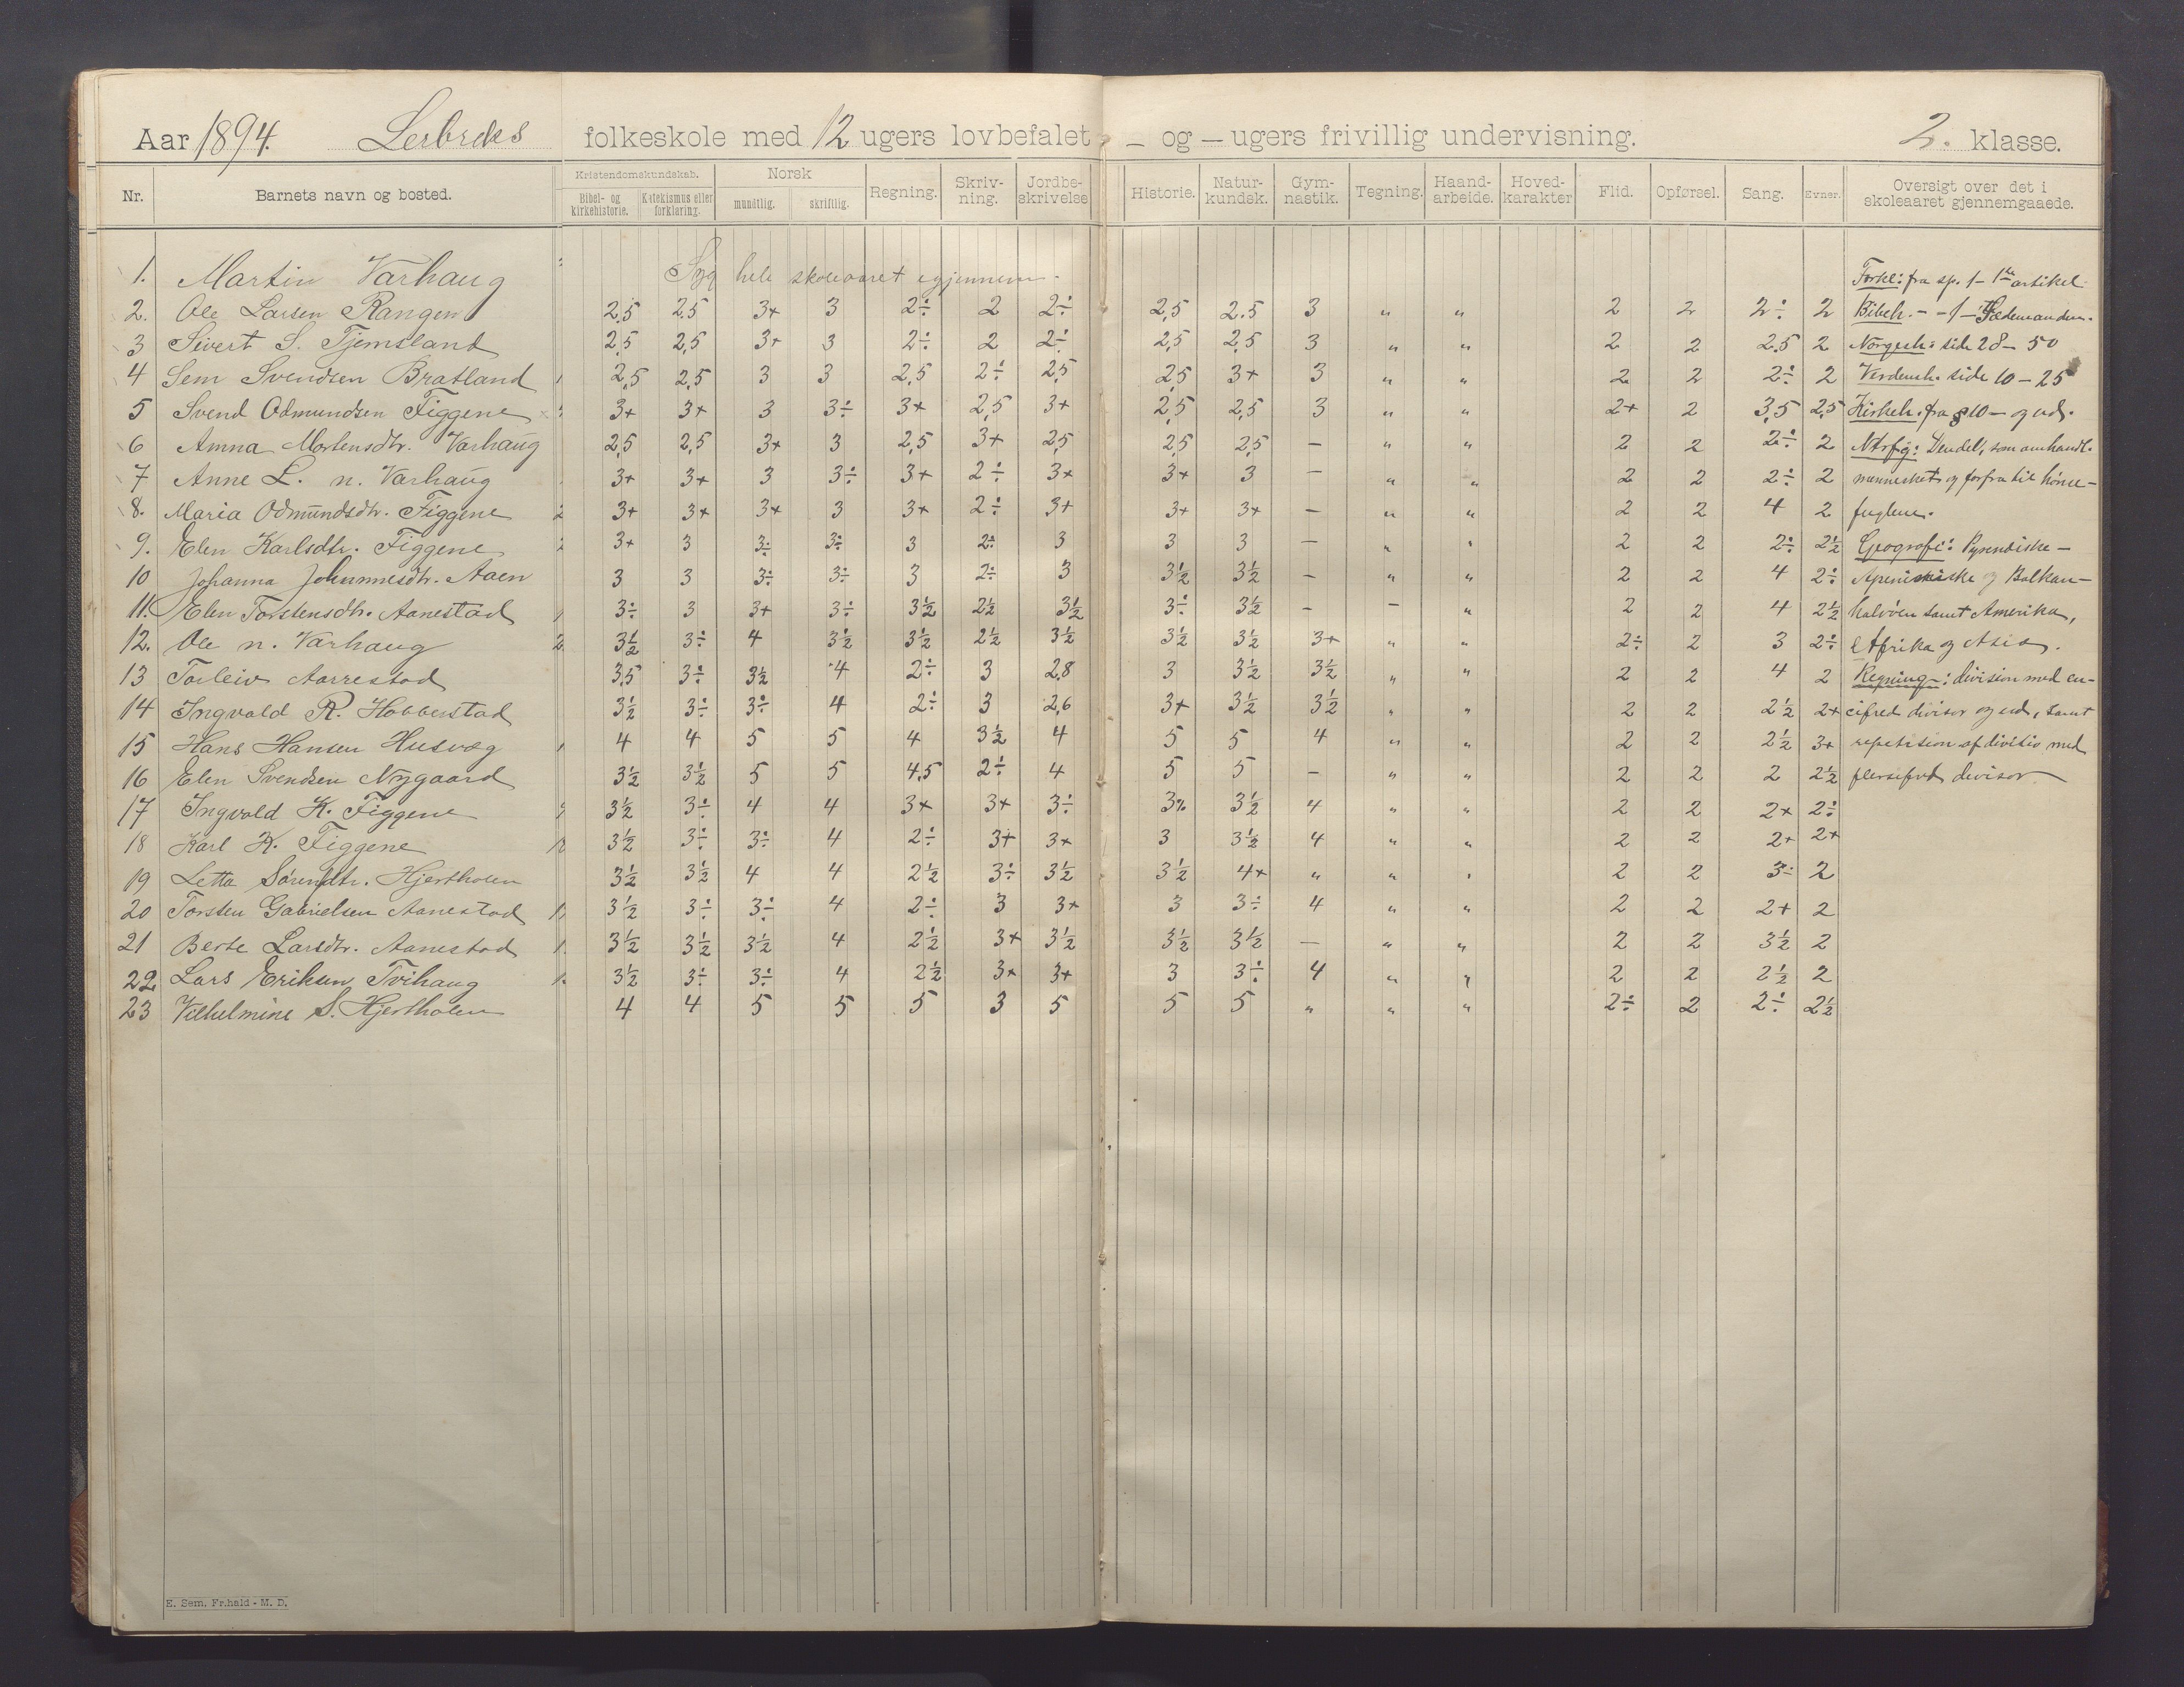 Aar 1894. Lerbreks folkeskole med 12 ugers lovbefalet – og – ugers frivillig undervisning. 2. klasse.
Nr. Barnets navn og bosted. Kristendomskundskab. Bibel- og kirkehistorie. Katekismus eller forklaring. Norsk mundtlig. skriftlig. Regning. Skriv-ning. Jordbe-skrivelse Historie. Natur-kundsk. Gym-nastik. Tegning. Haand-arbeide. Hoved-karakter Flid. Opførsel. Sang. Evner. Oversigt over det i skoleaaret gjennemgaaede.
1. Martin Varhaug Syg hele skoleaaret igjennem. Forkl: fra sp. 1 – 1ste artikel
2. Ole Larsen Rangen 2,5 2,5 3+ 3 2÷ 2 2÷ 2,5 2.5 3 " " 2 2 2÷ 2 Bibelh. – – 1 – Sædemanden.
3 Sivert S. Tjemsland 2,5 2,5 3+ 3 2÷ 2 2÷ 2,5 2,5 3 " " 2 2 2.5 2 Norgesh: side 28 – 50
4 Sem Svendsen Bratland 2,5 2,5 3 3 2,5 2÷ 2,5 2,5 3+ 3 " " 2 2 2÷ 2 Verdensh. side 10 – 25
5 Svend Odmundsen Figgene 3+ 3+ 3 3÷ 3+ 2,5 3+ 2,5 2,5 3 " " 2+ 2 3,5 2,5 Kirkeh. fra § 10 – og ud.
6 Amna Mortensdtr. Varhaug 2,5 2,5 3+ 3 2,5 3+ 2,5 2,5 2,5 – " " 2 2 2÷ 2 Den del, som omhandl.
7 Anne L. n. Varhaug 3+ 3+ 3 3÷ 3+ 2÷ 3+ 3+ 3 – " " 2 2 2÷ 2 mennesket og forfra til hønse-
8. Maria Odmundsdtr. Figgene 2 3+ 3+ 3+ 3 3+ 2÷ 3+ 3+ 3+ – " " 2 2 4 2 fuglene.
9. Elen Karlsdtr. Figgene 2 3+ 3 3÷ 3÷ 3 2÷ 3 3 3 – " " 2 2 2÷ 2½ Geografi: Pyrenæiske –
10 Johanna Johannesdtr. Aaen 3 3 3÷ 3÷ 3 2÷ 3 3½ 3½ – " " 2 2 4 2÷ Apeninske og Balkan-
11. Elen Torstensdtr. Aanestad 3÷ 3 3+ 3÷ 3½ 2½ 3½ 3÷ 3½ – – " 2 2 4 2½ halvøen samt Amerika,
12. Ole n. Varhaug 2 3½ 3÷ 4 3½ 3½ 2½ 3½ 3½ 3½ 3+ " " 2÷ 2 3 2÷ Afrika og Asia.
13 Torleiv Aarrestad 3,5 3÷ 3½ 4 2÷ 3 2,8 3 3½ 3½ " " 2 2 4 2 Regning: division med en-
14 Ingvald R. Hobberstad 3½ 3÷ 3÷ 4 2÷ 3 2,6 3+ 3½ 3½ " " 2 2 2½ 2+ cifred divisor og ud, samt
15 Hans Hansen Husvæg 4 4 5 5 4 3½ 4 5 5 4 " " 2 2 2½ 3+ repetition af division med
16 Elen Svendsen Nygaard 3½ 3½ 5 5 4,5 2÷ 4 5 5 – " " 2 2 2 2½ flersifred divisor
17 Ingvald K. Figgene 3½ 3÷ 4 4 3+ 3+ 3÷ 3% 3½ 4 " " 2 2 2+ 2÷
18 Karl K. Figgene 3½ 3÷ 3÷ 4 2÷ 3+ 3+ 3 3½ 4 " " 2 2 2+ 2+
19 Letta Sørensdtr. Hjertholen 3½ 3½ 4 4 2½ 3÷ 3½ 3½ 4+ " " " 2 2 3÷ 2
20 Torsten Gabrielsen Aanestad 3½ 3÷ 3÷ 4 2÷ 3 3+ 3 3÷ 4 " " 2 2 2+ 2
21 Berte Larsdtr. Aanestad 1. 3½ 3½ 3½ 4 2½ 3+ 3½ 3½ 3½ – " " 2 2 3½ 2
22. Lars Eriksen Tvihaug 1. 3½ 3÷ 3÷ 4 2½ 3+ 3+ 3 3÷ 4 " " 2 2 2½ 2
23 Vilhelmine S. Hjertholen 4 4 5 5 5 3 5 5 5 " " " 2÷ 2 2÷ 2½
E. Sem. Fr.hald - M. D.